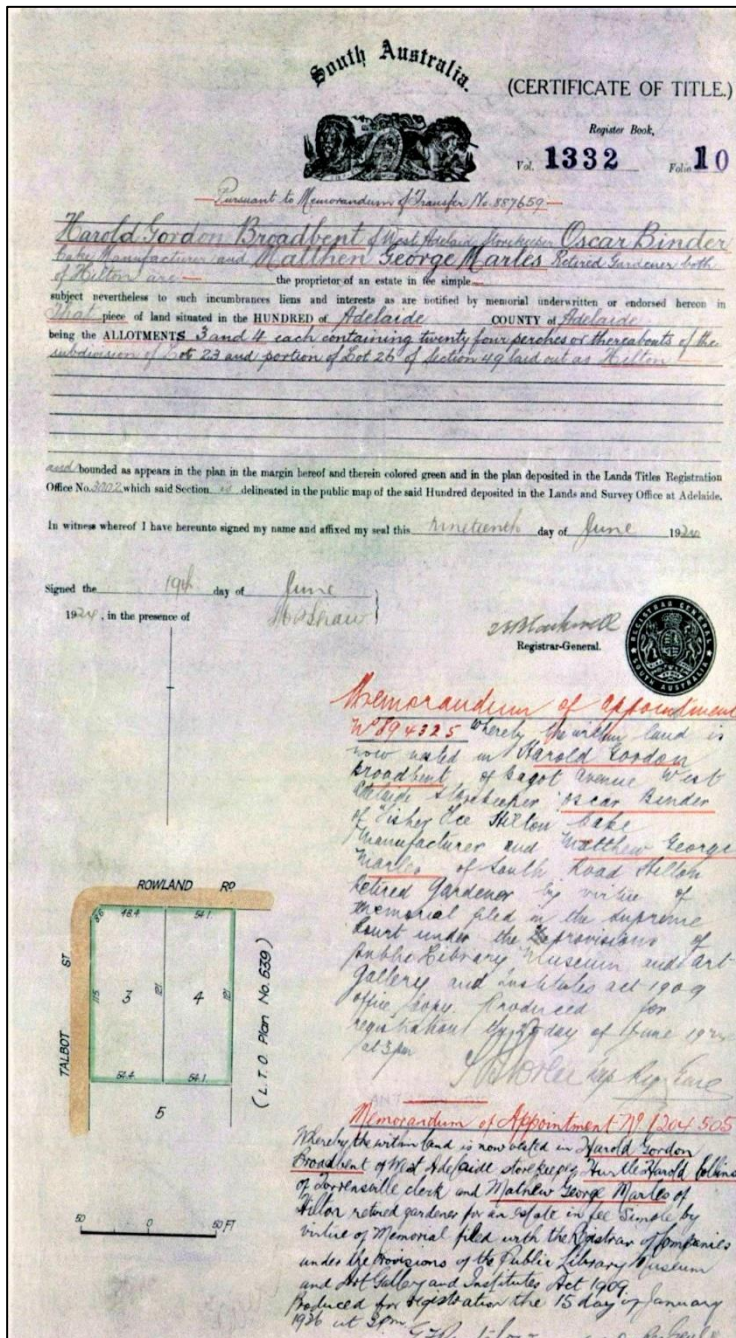 South Australia.
(CERTIFICATE OF TITLE.)
Register Book,
Vol. 1332 Folio 10
Pursuant to Memorandum of Transfer No. 887659
Harold Gordon Broadbent of West Adelaide Storekeeper Oscar Binder
Cake Manufacturer and Matthen George Marles Retired Gardener both
of Hilton are the proprietor of an estate in fee simple
subject nevertheless to such incumbrances liens and interests as are notified by memorial underwritten or endorsed hereon in
That piece of land situated in the HUNDRED of Adelaide COUNTY of Adelaide
being the ALLOTMENTS 3 and 4 each containing twenty four perches or thereabouts of the
subdivision of Lot 23 and portion of Lot 26 of Section 49 laid out as Hilton
and bounded as appears in the plan in the margin hereof and therein colored green and in the plan deposited in the Lands Titles Registration
Office No. 3002 which said Section is delineated in the public map of the said Hundred deposited in the Lands and Survey Office at Adelaide.
In witness whereof I have hereunto signed my name and affixed my seal this nineteenth day of June 1924
Signed the 19th day of June
1924, in the presence of
Registrar-General.
REGISTRAR GENERAL
SOUTH AUSTRALIA
Memorandum of Appointment
No 894325 whereby the within land is
now vested in Harold Gordon
Broadbent of Bagot Avenue West
Adelaide Storekeeper Oscar Binder
of Fisher Tce Hilton Cake
Manufacturer and Matthew George
Marles of South Road Hilton
Retired Gardener by virtue of
Memorial filed in the Supreme
Court under the provisions of
Public Library Museum and Art
Gallery and Institutes Act 1909
Office copy. Produced for
registration day of June
at 3pm
ROWLAND RD
TALBOT ST
8.6 48.4 54.1
115 3 121 4 121
54.4 54.1
5
(L.T.O Plan No. 639)
50 0 50 FT
Memorandum of Appointment No 1204505
Whereby the within land is now vested in Harold Gordon
Broadbent of West Adelaide storekeeper Hurtle Harold Collins
of Torrensville clerk and Mathew George Marles of
Hilton retired gardener for an estate in fee Simple by
virtue of Memorial filed with the Registrar of Companies
under the provisions of the Public Library Museum
and Art Gallery and Institutes Act 1909.
Produced for registration the 15 day of January
1936 at 3pm